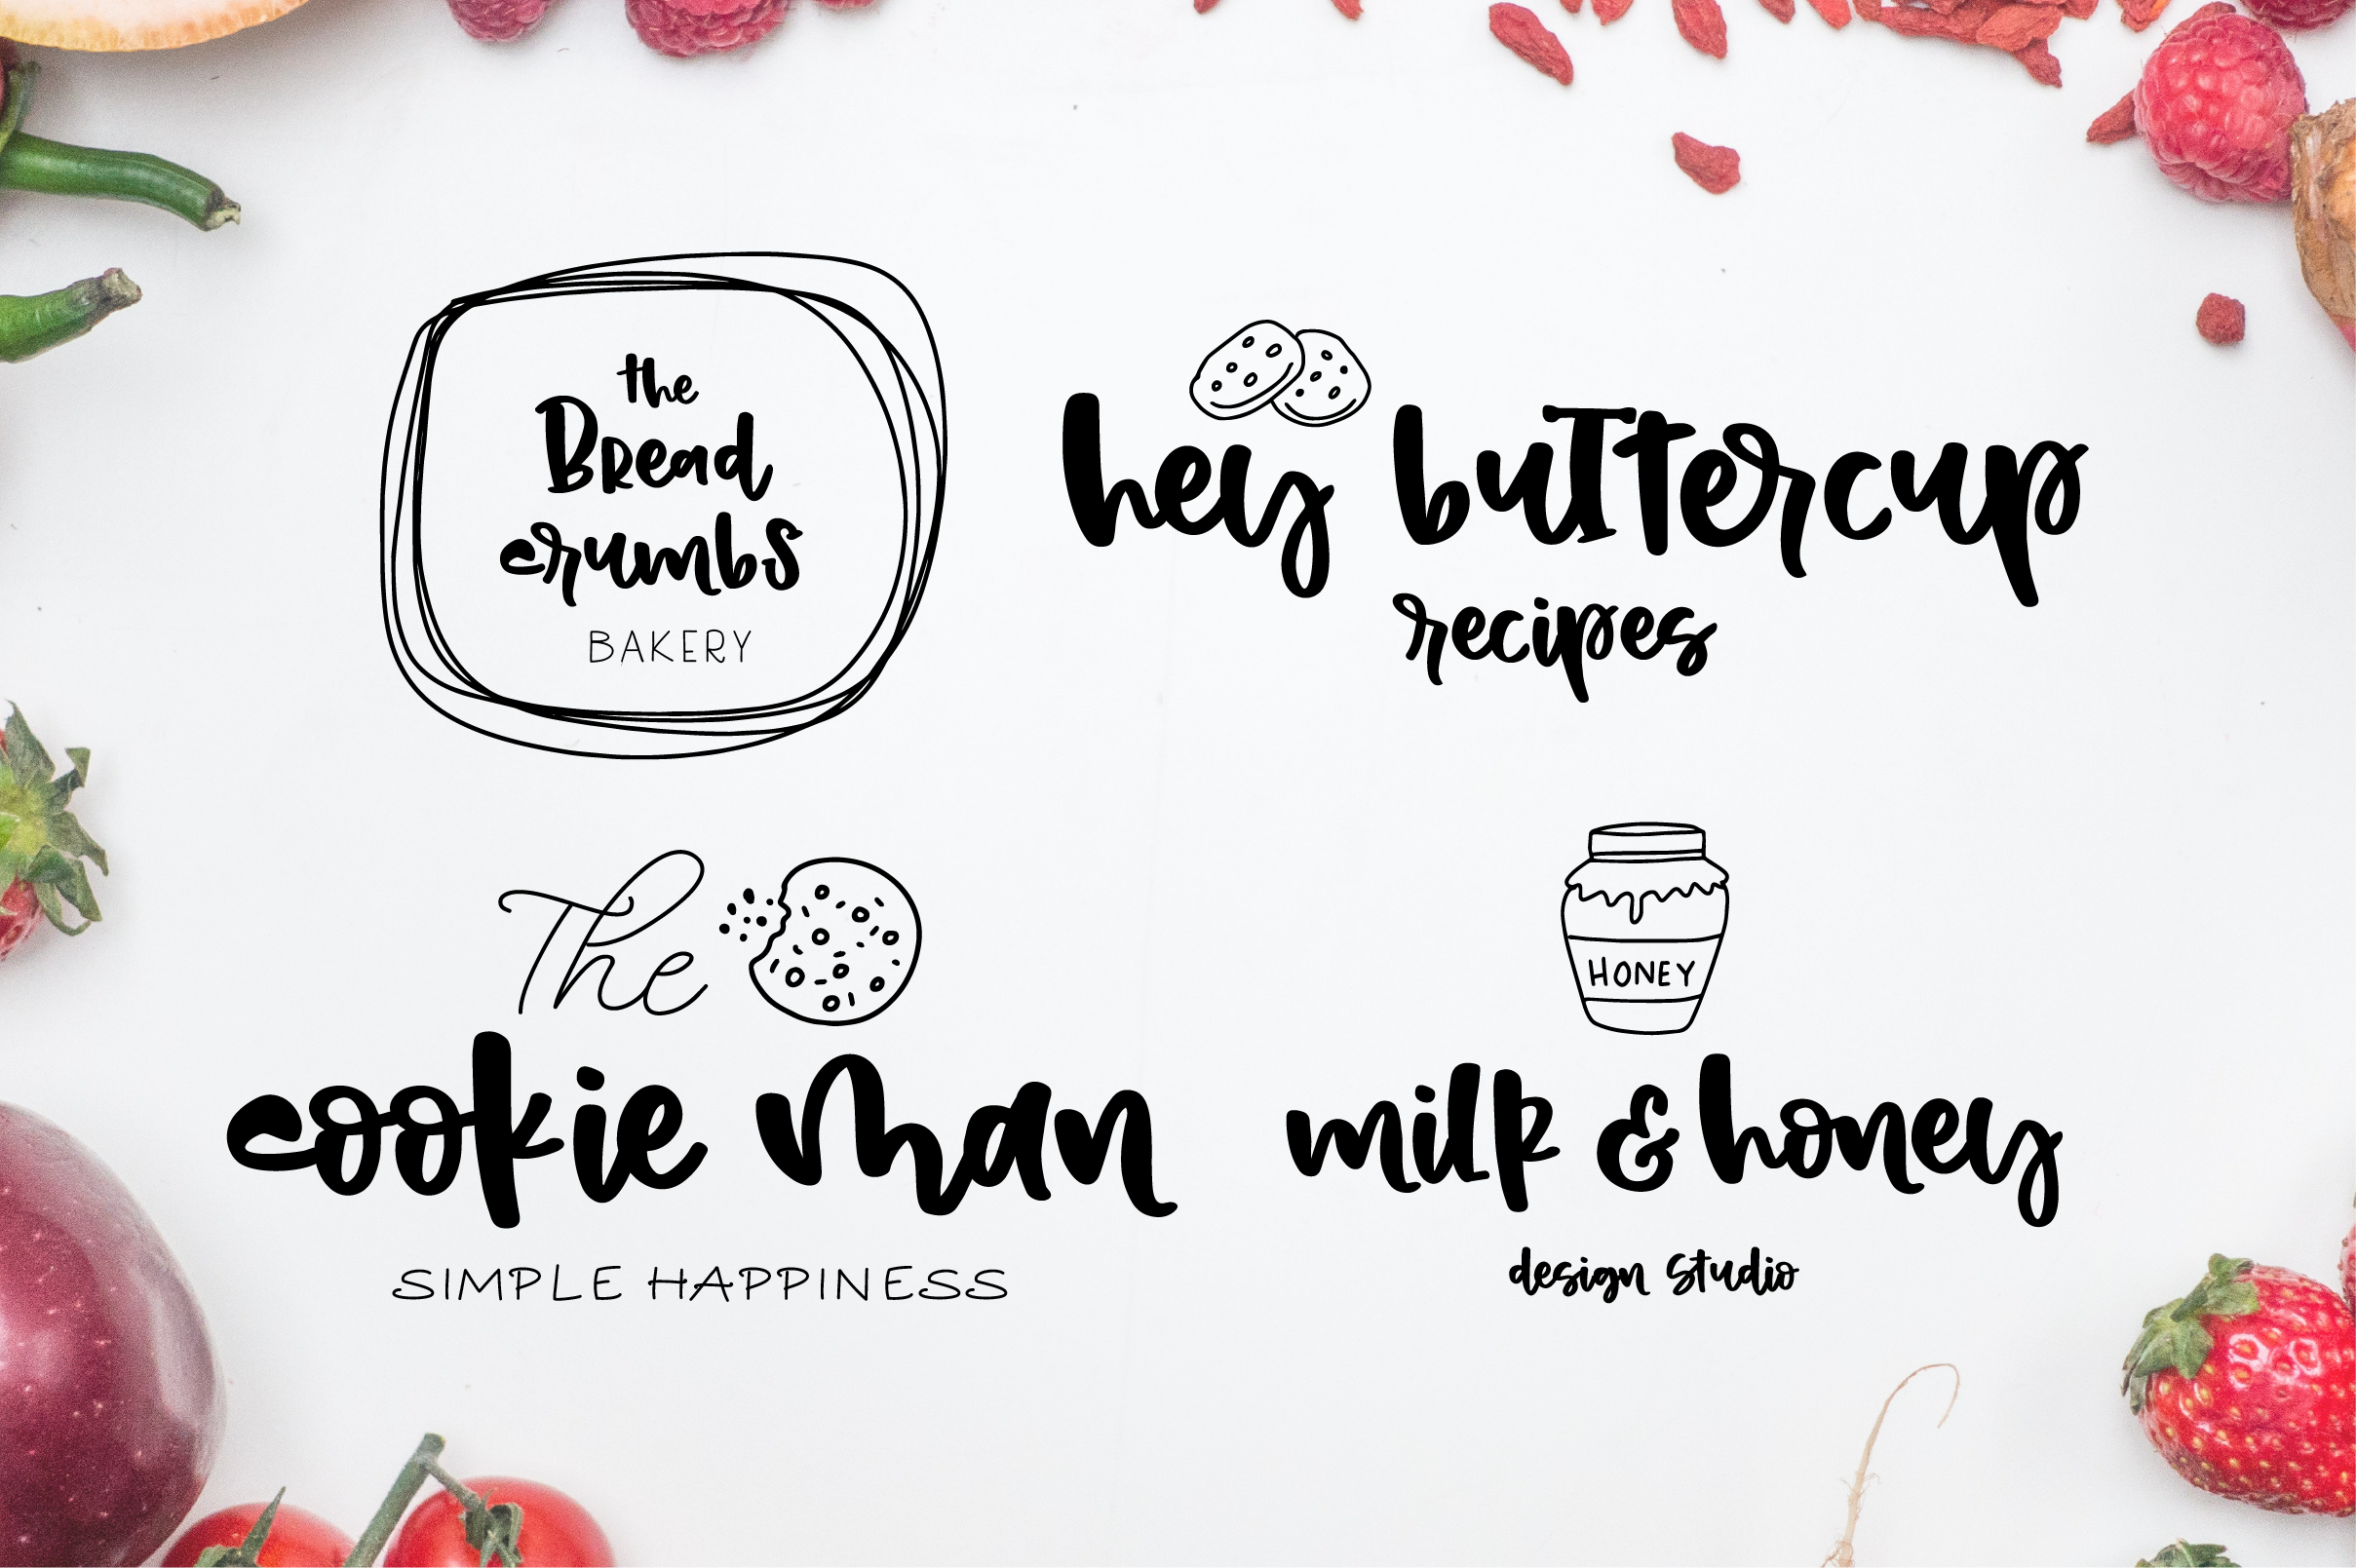 the
Bread
crumbs
BAKERY
hey buttercup
recipes
The
cookie man
SIMPLE HAPPINESS
HONEY
milk & honey
design studio